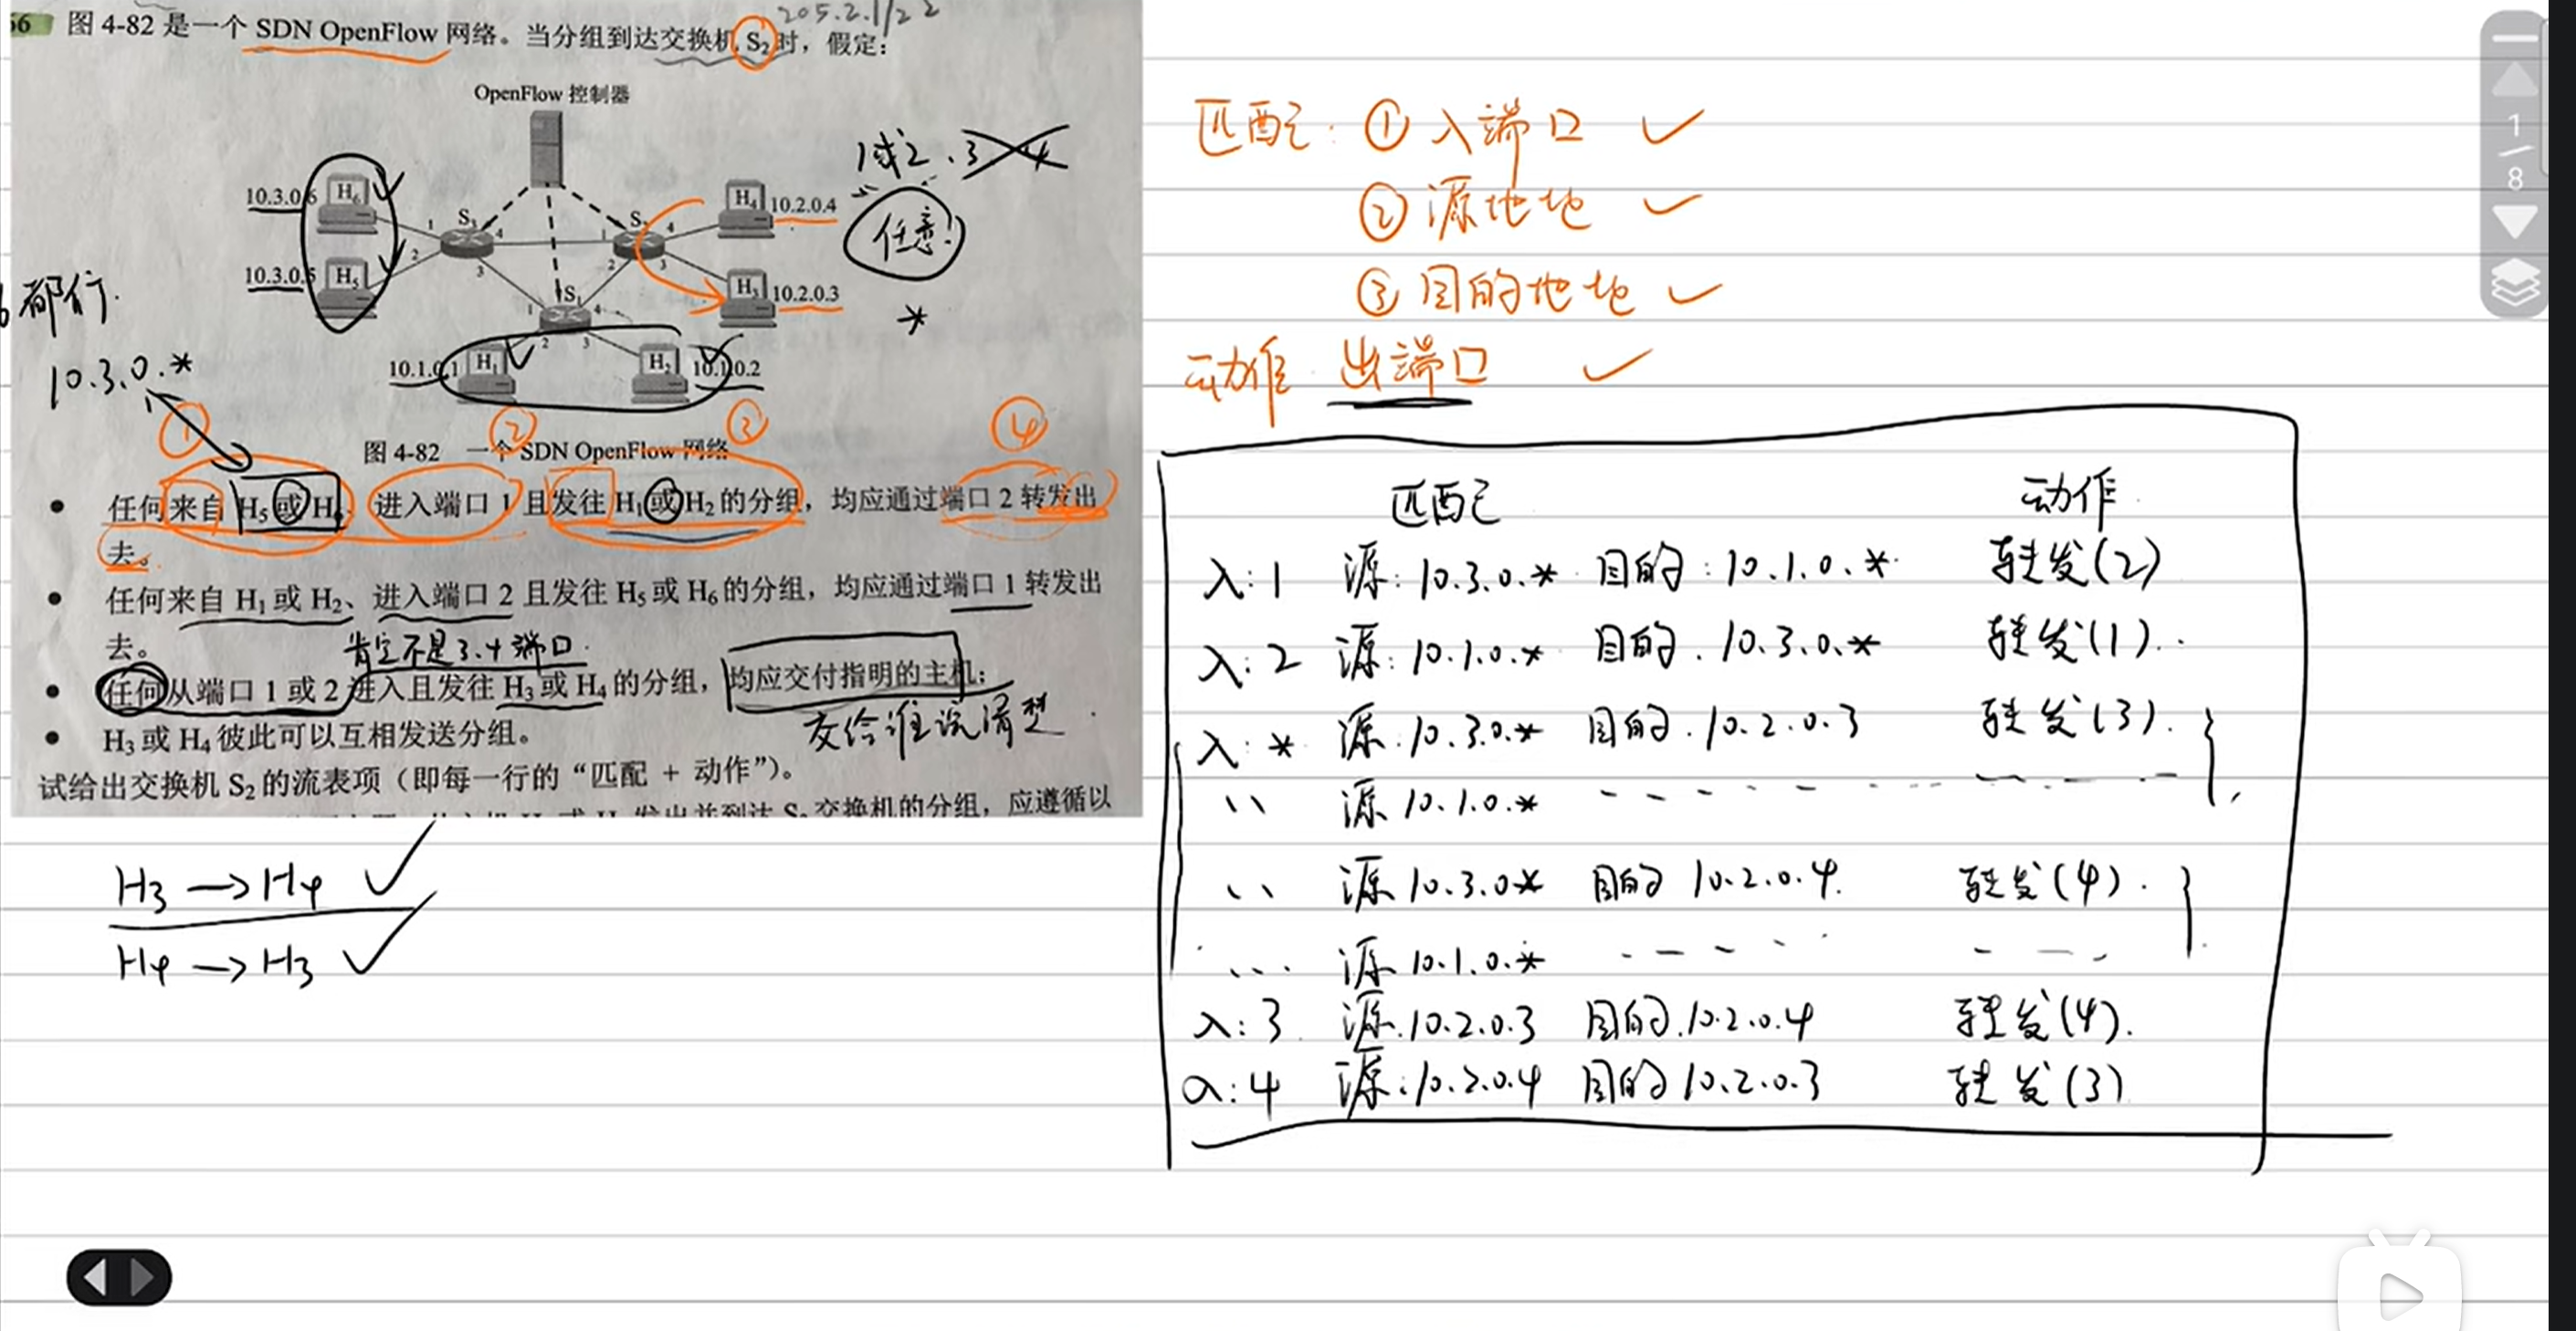 66 图 4-82 是一个 SDN OpenFlow 网络。当分组到达交换机 S₂ 时，假定：
205.2.1/22
OpenFlow 控制器
1或2.3 4
任意!
*
10.3.0.6 H₆
S₃
1 4
2 3
10.3.0.5 H₅
S₂
1 4
2 3
H₄ 10.2.0.4
H₃ 10.2.0.3
S₁
1 4
2 3
10.1.0.1 H₁
H₂ 10.1.0.2
都行.
10.3.0.*
① ② ③ ④
图 4-82 一个 SDN OpenFlow 网络
• 任何来自 H₅ 或 H₆、进入端口 1 且发往 H₁ 或 H₂ 的分组，均应通过端口 2 转发出
去。
• 任何来自 H₁ 或 H₂、进入端口 2 且发往 H₅ 或 H₆ 的分组，均应通过端口 1 转发出
去。
肯定不是3.4端口.
• 任何从端口 1 或 2 进入且发往 H₃ 或 H₄ 的分组，均应交付指明的主机；
交给谁说清楚
• H₃ 或 H₄ 彼此可以互相发送分组。
试给出交换机 S₂ 的流表项（即每一行的“匹配 + 动作”）。
发出并到达 S₂ 交换机的分组，应遵循以
H3 → H4 ✓
H4 → H3 ✓
匹配: ① 入端口 ✓
② 源地址 ✓
③ 目的地址 ✓
动作 出端口 ✓
匹配 动作
入:1 源:10.3.0.* 目的:10.1.0.* 转发(2)
入:2 源:10.1.0.* 目的.10.3.0.* 转发(1).
入:* 源:10.3.0.* 目的.10.2.0.3 转发(3).
‘‘ 源 10.1.0.* - - - - - - - -
‘‘ 源 10.3.0.* 目的 10.2.0.4. 转发(4).
... 源 10.1.0.* - - - - - - - -
入:3 源.10.2.0.3 目的.10.2.0.4 转发(4).
入:4 源:10.2.0.4 目的 10.2.0.3 转发(3)
1/8